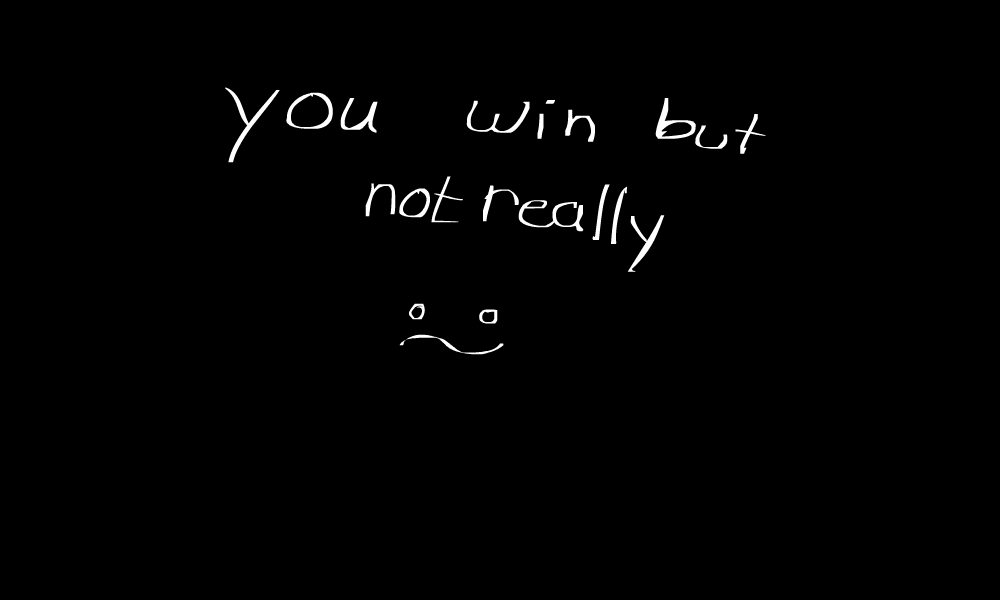 you win but
not really